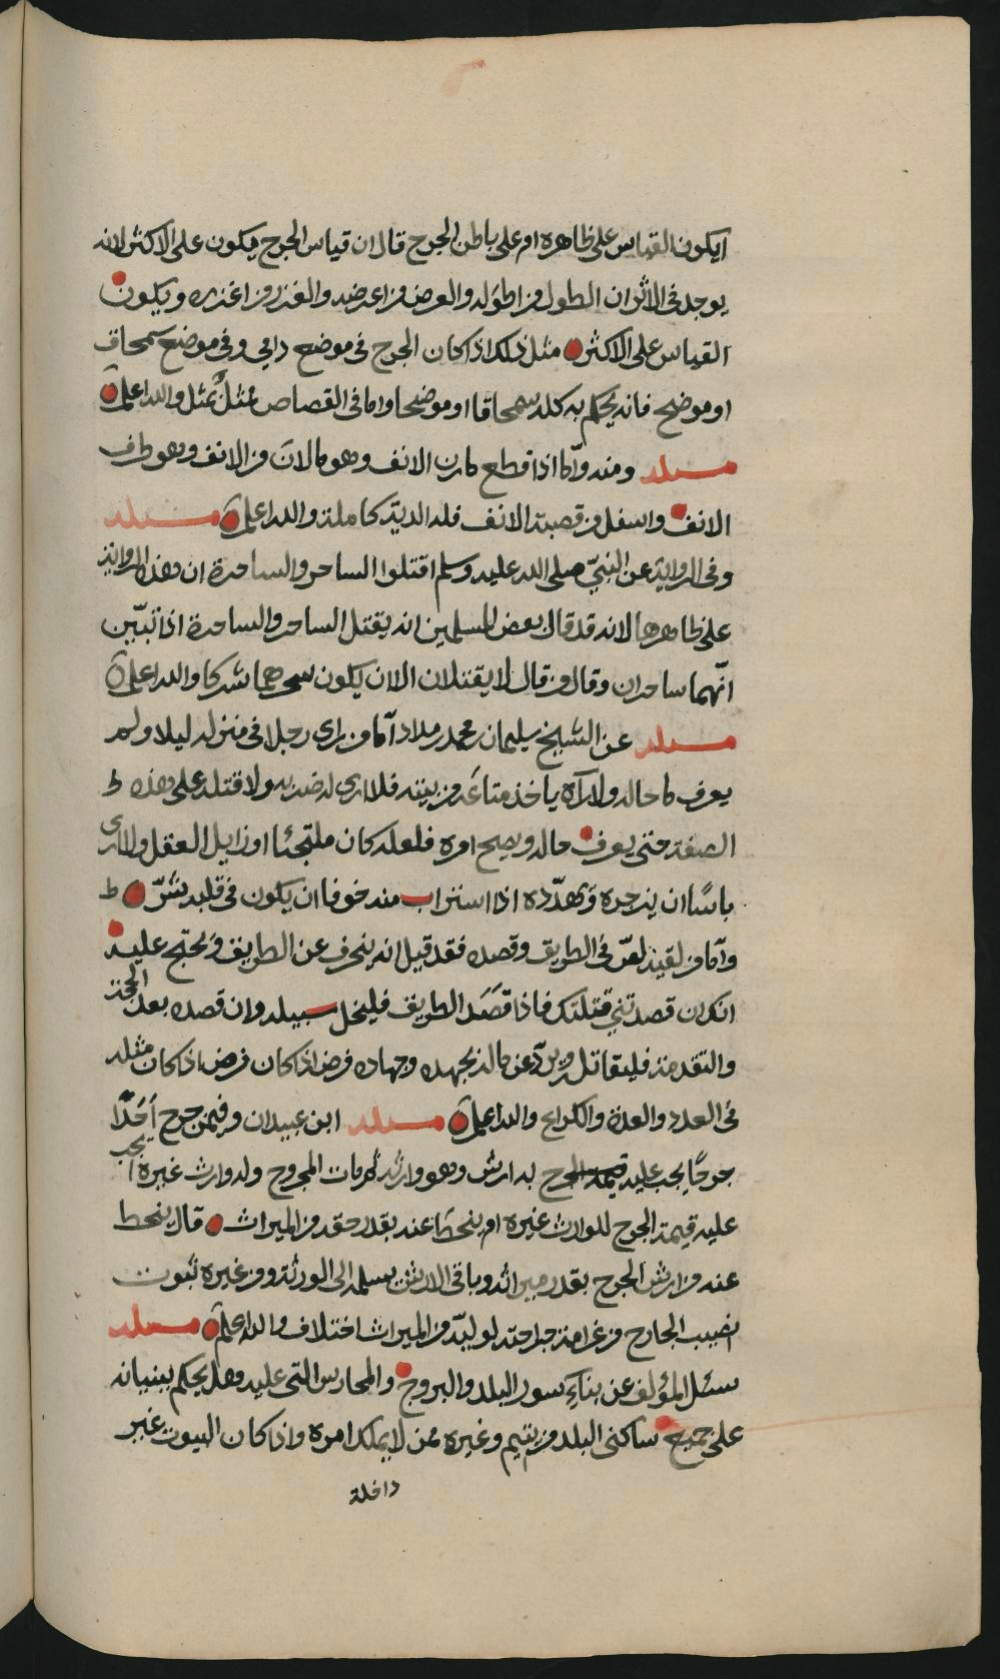 ايكون القياس على ظاهره ام على باطن الجرح قال ان قياس الجرح يكون على الاكثر لانه
يوجد في الاثر ان الطول من اطوله والعرض من اعرضه والغزر من اغزره ويكون
القياس على الاكثر مثل ذلك اذا كان الجرح في موضع دامي وفي موضع سمحاق
او موضح فانه يحكم به كله سمحاقا او موضحا واما في القصاص مثلٌ بمثل والله اعلم
مسئله ومنه واما اذا قطع مارن الانف وهو مالان من الانف وهو طرف
الانف واسفل من قصبة الانف فله الدية كاملة والله اعلم مسئله
وفي الرواية عن النبيّ صلى الله عليه وسلم اقتلوا الساحر والساحرة ان هذه الرواية
على ظاهرها لانه قد قال بعض المسلمين انه يقتل الساحر والساحرة اذا تبيّن
انّهما ساحران وقال من قال لا يقتلان الا ان يكون سحرهما شركا والله اعلم
مسئله عن الشيخ سليمان بن محمد بن مداد اما من راى رجلا في منزله ليلا ولم
يعرف ما حاله ولا رآه ياخذ متاعَه من بيته فلا ارى له ضربه ولا قتله على هذه
الصفة حتى يعرف حاله ويصح امره فلعله كان ملتجئا او زايل العقل ولا ارى
باسًا ان يزجره وَيهدّده اذا استراب منه خوفا ان يكون في قلبه شرّ
وامّا من لقيه لصّ في الطريق وقصده فقد قيل انه ينحرف عن الطريق وَيحتج عليه
انك ان قصدتني قتلتك فاذا قصَدَ الطريق فليخل سبيله وان قصده بعد الحجة
والتقدمة فليقاتله ويردّ عن ماله بجهده وجهاده فرض اذا كان فرض اذا كان مثله
في العدد والعدة والكراع والله اعلم مسئله ابن عبيدان وفيمن جرح اَحَدًا
جرحًا يجب عليه قيمة الجرح به ارش وهو وارثه ثم مات المجروح وله وارث غيره ايجب
عليه قيمة الجرح للوارث غيره ام ينحطّ عنه بقدر حقه من الميراث قال ينحط
عنه من ارش الجرح بقدر ميراثه وباقي الارش يسلمه الى الورثة ومن غيره ثبوت
نصيب الجارح من غرامة جراحته لوليّه من الميراث اختلاف والله اعلم مسئله
سئل المؤلف عن بناءِ سور البلد والبروج والمحارس التي عليه وهل يحكم ببنيانه
على جميع ساكني البلد من يتيم وغيره ممن لا يملك امره واذا كان البيوت غير
داخلة